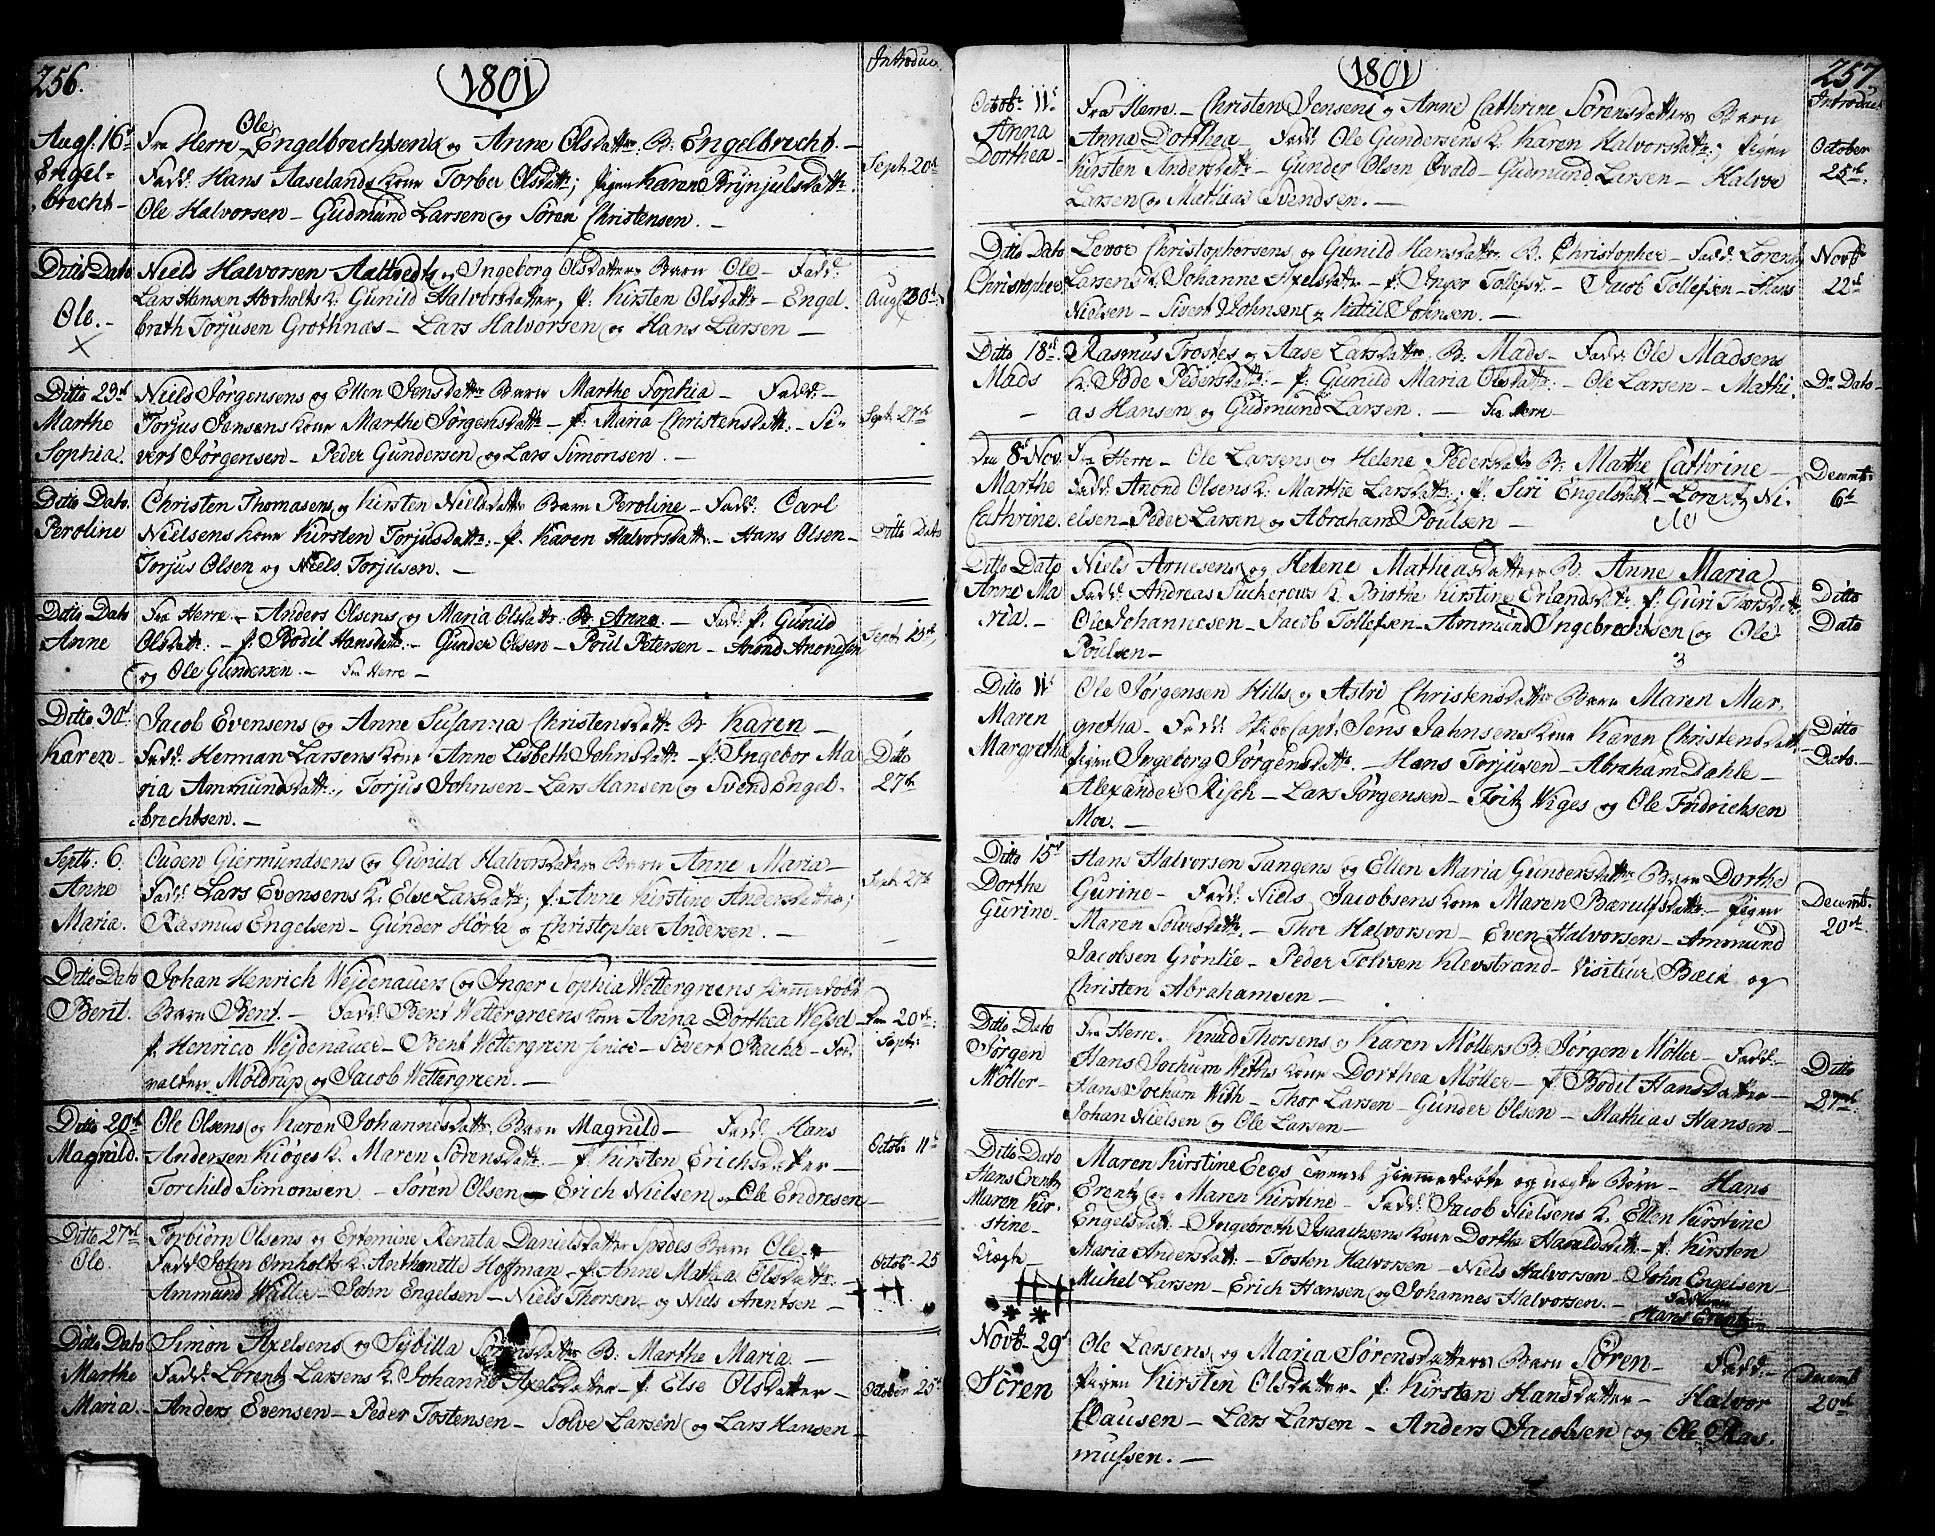 256.
1801
Introduc.
Augs: 16de
Engel-
brecht-
Ole
Fra Herre - Engelbrechtsens og Anne Olsdatter B: Engelbrecht. -
Fadd: Hans Aaselands kone Torber Olsdattr; pigen Karen Brynjulsdattr.
Ole Halvorsen - Gudmund Larsen og Søren Christensen. -
Sept: 20de
Ditto Dato
Ole. -
Niels Halvorsen Aaltvedt og Ingeborg Olsdatters Barn Ole - Fadd:
Lars Hansen Hovholts K. Gunild Halvorsdatter, p. Kirsten Olsdattr - Engel-
breth Torjusen Grothnæs - Lars Halvorsen og Hans Larsen -
Augs 30te
Ditto 23de
Marthe
Sophia.
Niels Jørgensens og Ellen Jensdattrs Barn Marthe Sophia - Fadd: -
Torjus Jensens kone Marthe Jørgensdattr - p: Maria Christensdattr: - Si-
vert Jørgensen - Peder Gundersen og Lars Simonsen. -
Sept: 27de
Ditto Dato.
Peroline
Christen Thomasens og Kirsten Nielsdattrs Barn Peroline - Fadd: Carl
Nielsens kone Kirsten Torjusdattr: - p. Karen Halvorsdattr: - Hans Olsen -
Torjus Olsen og Niels Torjusen. -
Ditto Dato
Ditto Dato
Anne
Fra Herre - Anders Olsens og Maria Olsdattr: B: Anne. - Fadd: p: Gunild
Olsdattr. - p. Bodil Hansdattr. - Gunder Olsen - Poul Petersen - Anond Anondsen
og Ole Gundersen. - Fra Herre -
Ditto 30de
Karen -
Jacob Evensens og Anne Susanna Christensdattr B: Karen -
Fadd: Herman Larsens kone Anne Lisbeth Johnsdattr - p. Ingebor Ma-
ria Ammundsdattr; Torjus Johnsen - Lars Hansen og Svend Engel-
brechtsen. -
Ditto
27de
Septb: 6.
Anne
Maria.
Ougen Giermundsens og Gunild Halvorsdatters Barn Anne Maria -
Fadd: Lars Evensens K. Else Larsdattr; p: Anne Kirstine Andersdatter;
Rasmus Engelsen - Gunder Hørte og Christopher Andersen. -
Sept: 27de
Ditto Dato
Bent.
Johan Henrich Wejdenauers og Inger Sophia Wettergreens hiemmedøbt
Barn Bent. - Fadd: Bent Wettergreens kone Anna Dorthea Wessel -
p. Henrica Wejdenauer - Bent Wettergreen senior - Sivert Bache - For-
valter Møldrup og Jacob Wettergreen. -
Den 20de
Septr:
Ditto 20de
Magnild.
Ole Olsens og Karen Johannesdattr: Barn Magnild - Fadd: Hans
Andersen Kiøges K. Maren Sørensdattr. - p. Kirsten Erichsdatter -
Torchild Simonsen - Søren Olsen - Erich Nielsen og Ole Endresen
Octob: 11te
Ditto 27de
Ole.
Torbiørn Olsens og Ertemine Renata Danielsdatter Spodes Barn Ole -
Fadd: John Omholts K: Anthonette Hoffman - p. Anne Mathea Olsdattr. -
Ammund Walle - John Engelsen - Niels Thorsen - og Niels Arentsen -
Octob: 25
Ditto Dato
Marthe
Maria. -
Simon Axelsens og Sibilla Sørensdattrs B: Marthe Maria. -
Fadd: Lorentz Larsens K. Johanne Axelsdatter - p: Else Olsdatter -
Anders Evensen - Peder Tostensen - Solve Larsen og Lars Hansen -
October 25de
1801
257
Introduc:
Octob: 11te
Anna
Dorthea -
Fra Herre - Christen Jensens og Anne Cathrine Sørensdatters Barn
Anna Dorthea - Fadd: Ole Gundersens K. Karen Halvorsdattr; pigen
Kirsten Andersdattr - Gunder Olsen Øvald - Gudmund Larsen - Halvor
Larsen og Mathias Svendsen. -
October
25de
Ditto Dato
Christopher
Levor Christophersens og Gunild Hansdattr B. Christopher - Fadd: Lorentz
Larsens K. Johanne Axelsdattr - p Inger Tollefsd - Jacob Tollefsen - Hans
Nielsen - Sivert Johnsen og Kittil Johnsen. -
Novbr
22de
Ditto 18de
Mads
Rasmus Trostes og Aase Larsdattr B: Mads - Fadd: Ole Madsens
K. Pode Pedersdattr: - p: Gunild Maria Olsdattr: - Ole Larsen - Mathi-
as Hansen og Gudmund Larsen. - Fra Herre -
Do Dato -
Den 8de Nov.
Marthe
Cathrine.
Fra Herre - Ole Larsens og Helene Pedersdattr B: Marthe Cathrine -
Fadd: Anond Olsens K: Marthe Larsdattr; p. Siri Engelsdattr - Lorentz Ni-
elsen - Peder Larsen og Abraham Poulsen -
Decemb:
6te
Ditto Dato
Anne Ma
ria. -
Niels Arnesens og Helene Mathiasdatters B. Anne Maria
Fadd: Andreas Suckerows K. Birthe Kirstine Erlandsdatr. p: Guri Thorsdattr
Ole Johannesen - Jacob Tollefsen - Ammund Ingebrechtsen og Ole
Poulsen -
Ditto
Dato
Ditto 11te
Maren
Margrethe
Ole Jørgensen Hills og Astri Christensdattrs Barn Maren Mar-
gretha - Fadd: Skibs Capt: Jens Jahnsens kone Karen Christensdattr
pigen Ingeborg Jørgensdattr. - Hans Torjusen - Abraham Dahle -
Alexander Risch - Lars Jørgensen - Fritz Wiges og Ole Fridrichsen
Moe. -
Ditto
Dato. -
Ditto 15de
Dorthe
Gurine -
Hans Halvorsen Tangens og Ellen Maria Gundersdattrs Barn Dorthe
Gurine - Fadd: Niels Jacobsens kone Maren Bærulfsdattr. - pigen
Maren Solvesdattr. - Thor Halvorsen - Even Halvorsen - Ammund
Jacobsen Grønlie - Peder Tolvsen Klevstrand - Visiteur Bæck og
Christen Abrahamsen -
Decemb:
20de
Ditto Dato
Jørgen
Møller -
Fra Herre. Knud Thorsens og Karen Møllers B. Jørgen Møller - Fadd:
Hans Jochum Withs kone Dorthea Møller - p. Bodil Hansdatter -
Hans Jochum With - Thor Larsen - Gunder Olsen - Mathias Hansen -
Johan Nielsen og Ole Larsen -
Ditto
27de
Ditto Dato
Hans Erentz
Maren Kir-
stine -
Uægte
Maren Kirstine Eegs tvende hjemmedøbte og uægte Børn - Hans
Erentz og Maren Kirstine - Fadd: Jacob Nielsens K. Ellen Kirstine
Engelsdattr. - Ingebreth Isaachsens kone Dorthe Haraldsdattr - p. Kirsten
Maria Andersdattr - Tosten Halvorsen - Niels Halvorsen - John Engelsen -
Michel Larsen - Erich Hansen og Johannes Halvorsen. - Faderen
Hans Erentz
Novb: 29de
Sören
Ole Larsens og Maria Sørensdatters Barn Søren - Fadd: -
Pigen Kirsten Olsdatter - p: Kirsten Hansdatter - Halvor
Clausen - Lars Larsen - Anders Jacobsen og Ole Ras-
mussen. -
Decemb
20de